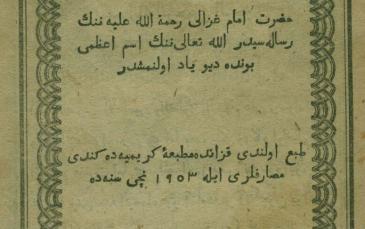 حضرت امام غزالى رحمة الله عليه ننك
رساله سيدر الله تعالى ننك اسم اعظمى
بونده ديو ياد اولنمشدر
طبع اولندى قزانده مطبعهٔ كريميه ده كندى
مصارفلرى ايله ۱۹۰۳ نچى سنه ده